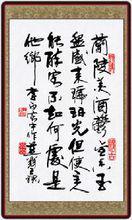 蘭陵美酒鬱金香玉
碗盛来琥珀光但使主人
能醉客不知何處是
他鄉 李白客中作